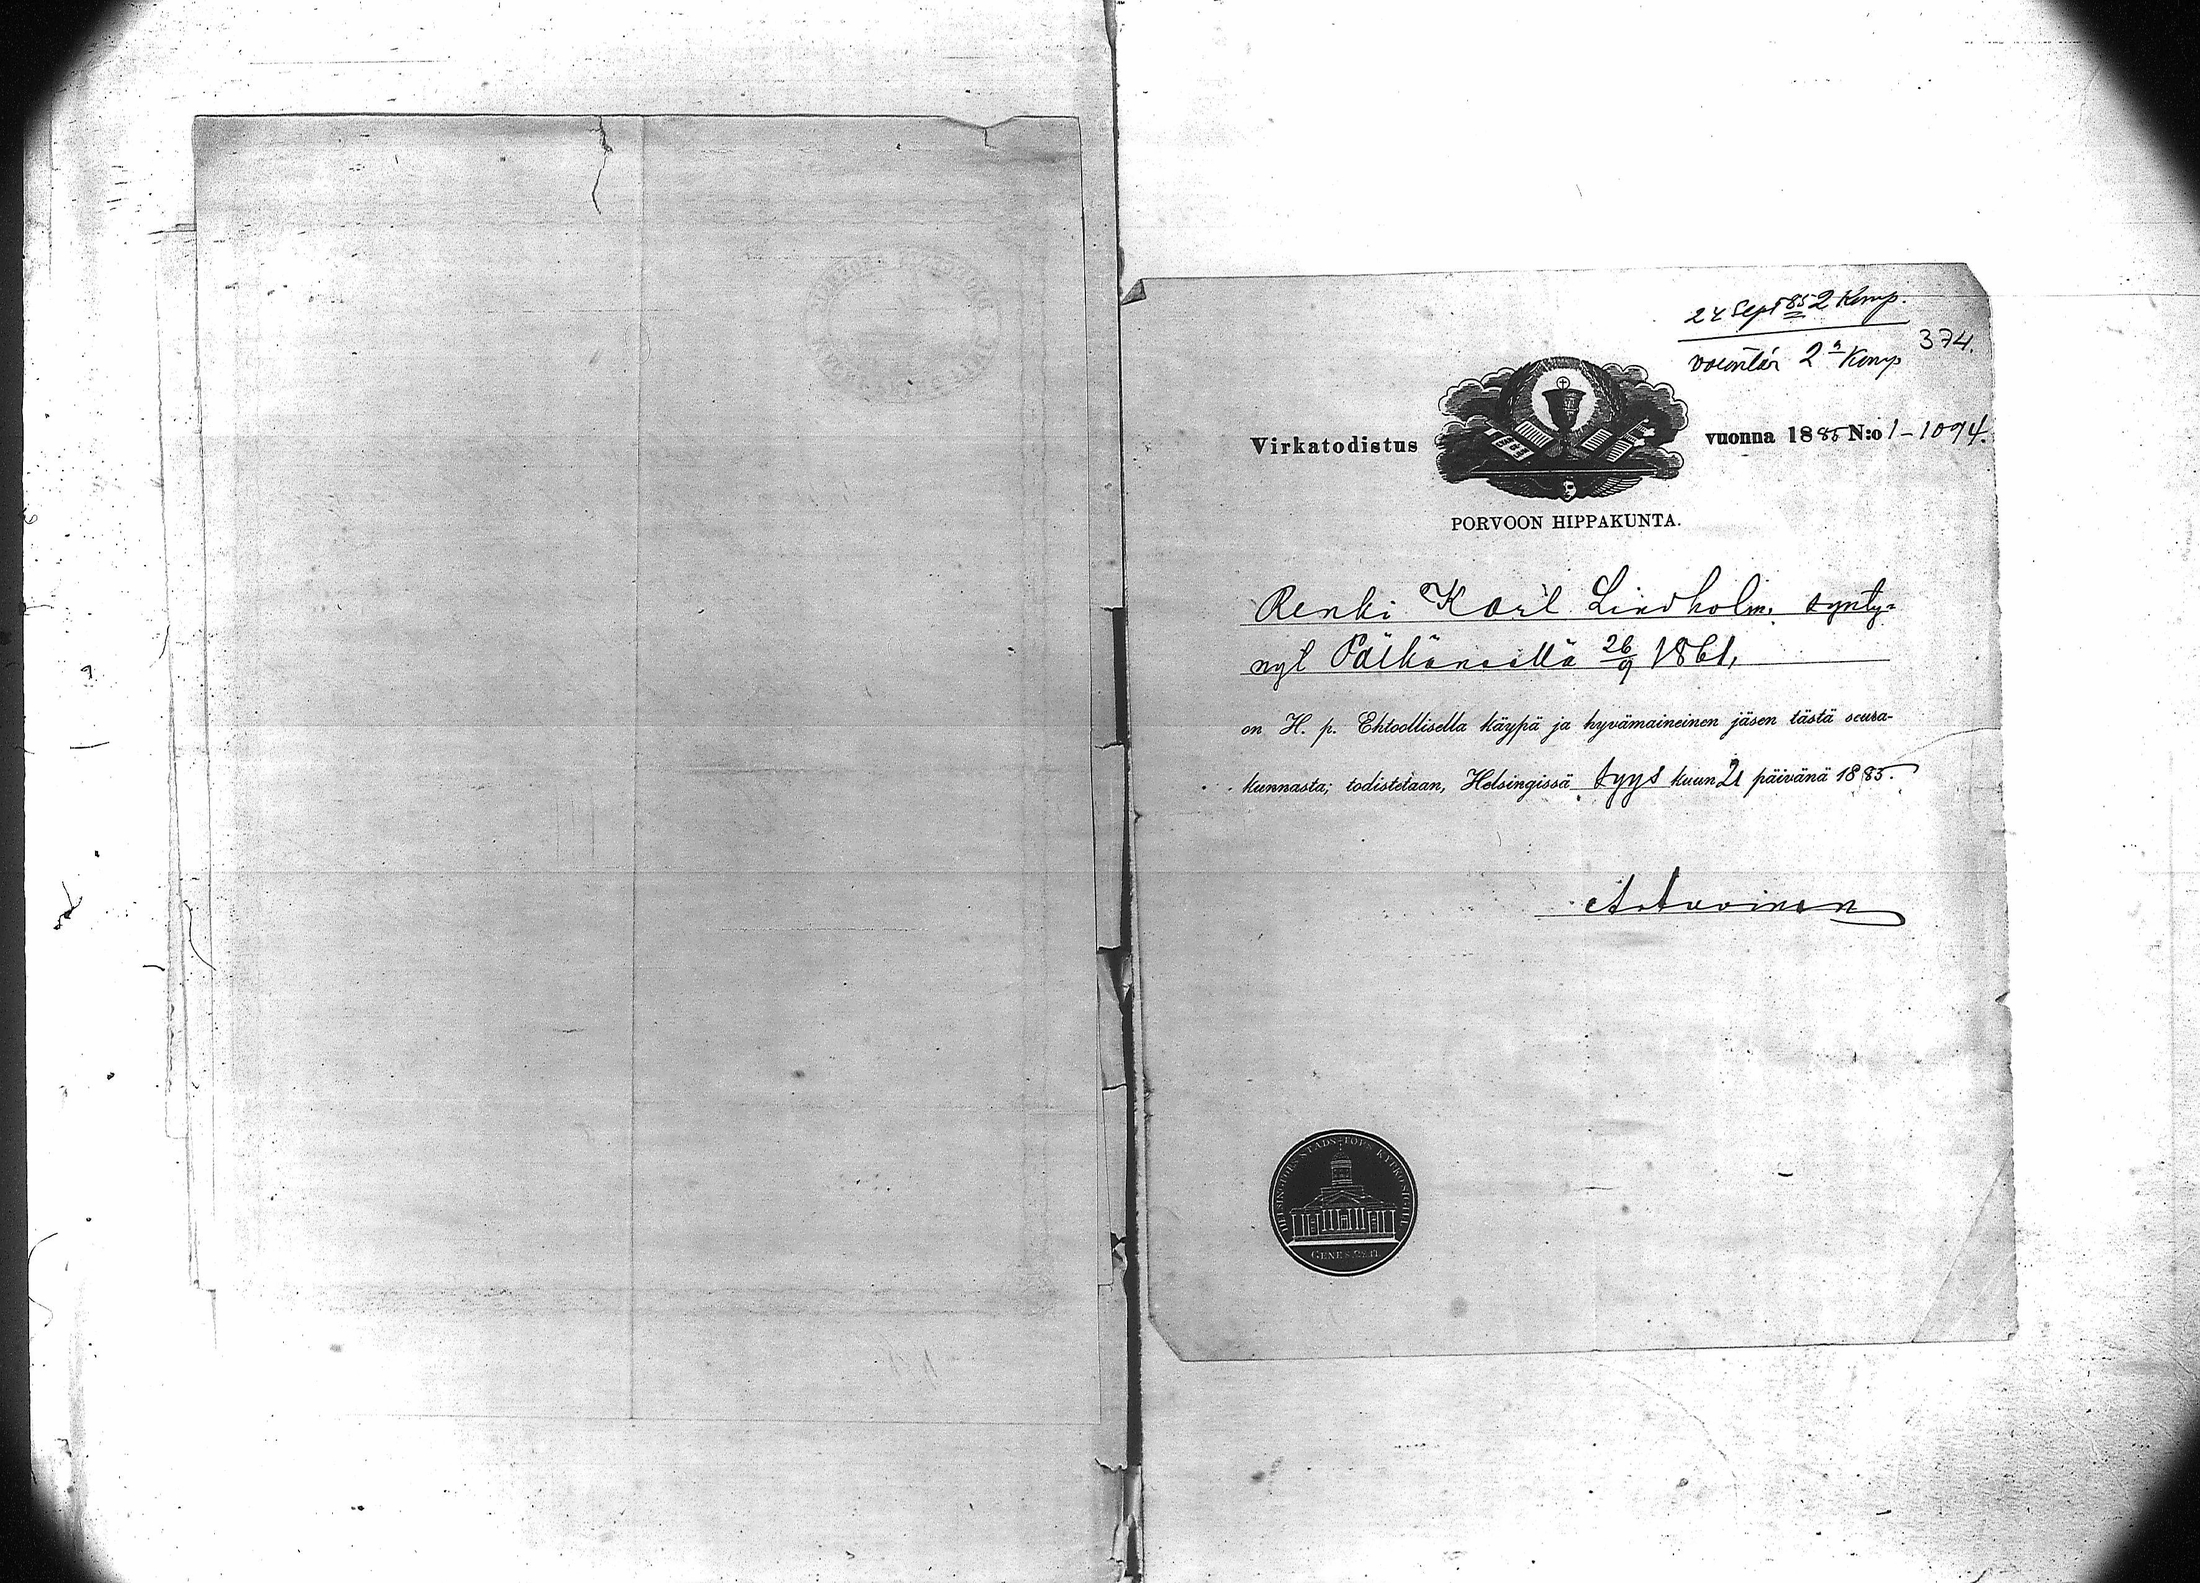 24 Sept 85 2 Komp.
374.
volentär 2a Komp
Virkatodistus vuonna 1885 N:o 1-1094.
PORVOON HIPPAKUNTA.
Renki Karl Lindholm, synty-
nyt Pälkäneellä 26/9 1861,
on H. p. Ehtoollisella käypä ja hyvämaineinen jäsen tästä seura-
kunnasta; todistetaan, Helsingissä syys kuun 21 päivänä 1885.
HELSINGFORS STADS
GENES.